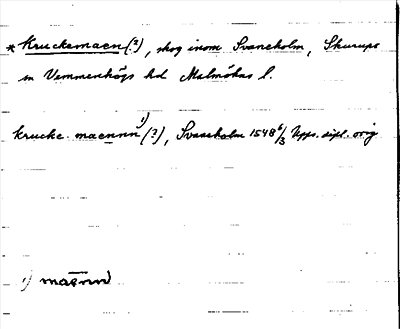 * Kruckemaen (?), skog inom Svaneholm, Skurups
sn Vemmenhögs hd Malmöhus l.
krucke maennn ¹) (?), Svaneholm 1548 6/3 Upps. dipl. orig
¹) maennn